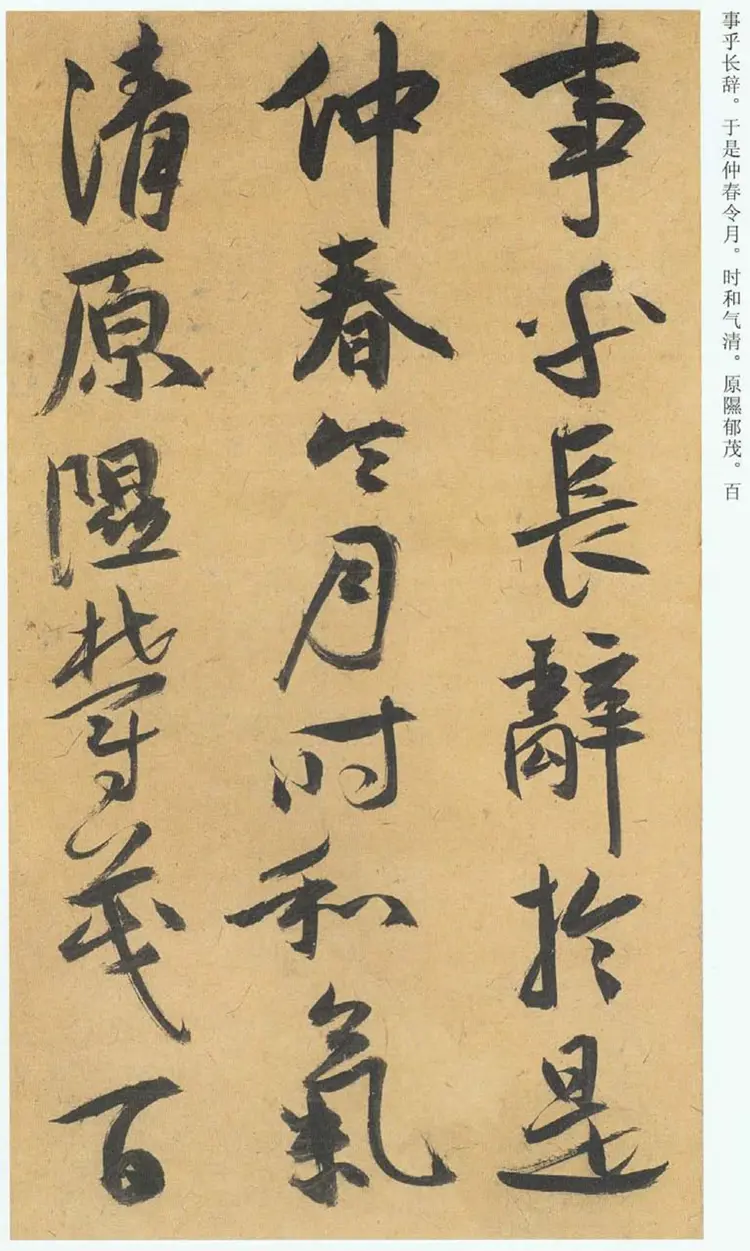 事乎长辞。于是仲春令月。时和气清。原隰郁茂。百
事乎長辭於是
仲春令月時和氣
清原隰鬱茂百